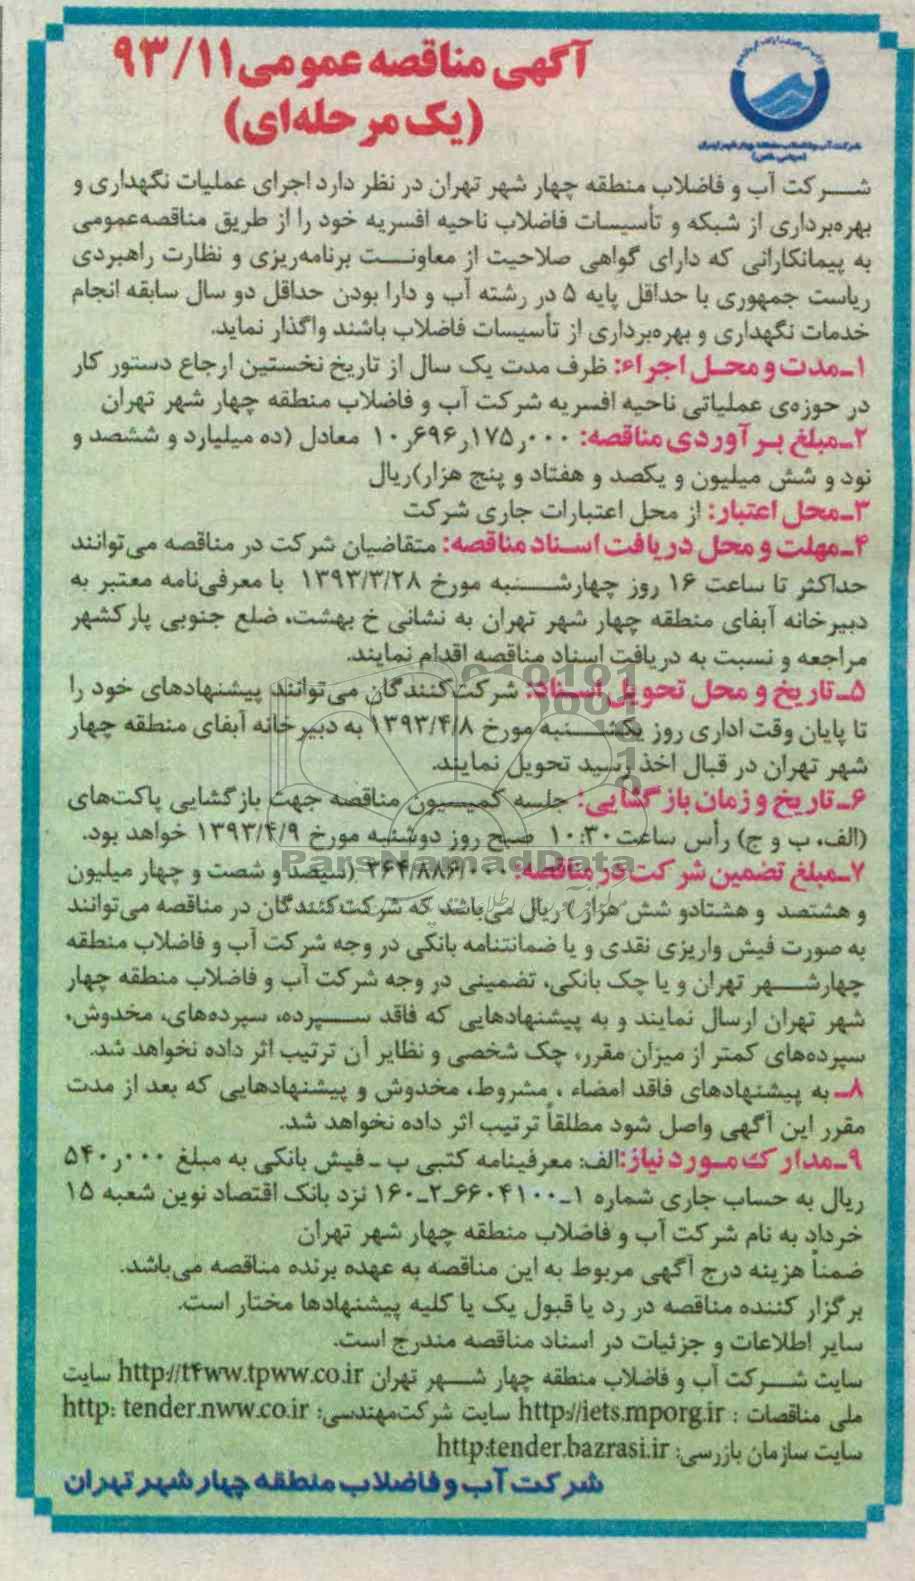 آگهی مناقصه عمومی ۹۳/۱۱
(یک مرحله‌ای)
شرکت آب و فاضلاب منطقه چهار شهر تهران
(سهامی خاص)
شرکت آب و فاضلاب منطقه چهار شهر تهران در نظر دارد اجرای عملیات نگهداری و
بهره‌برداری از شبکه و تأسیسات فاضلاب ناحیه افسریه خود را از طریق مناقصه‌عمومی
به پیمانکارانی که دارای گواهی صلاحیت از معاونت برنامه‌ریزی و نظارت راهبردی
ریاست جمهوری با حداقل پایه ۵ در رشته آب و دارا بودن حداقل دو سال سابقه انجام
خدمات نگهداری و بهره‌برداری از تأسیسات فاضلاب باشند واگذار نماید.
۱ـ مدت و محل اجراء: ظرف مدت یک سال از تاریخ نخستین ارجاع دستور کار
در حوزه‌ی عملیاتی ناحیه افسریه شرکت آب و فاضلاب منطقه چهار شهر تهران
۲ـ مبلغ برآوردی مناقصه: ۱۰٫۶۹۶٫۱۷۵٫۰۰۰ معادل (ده میلیارد و ششصد و
نود و شش میلیون و یکصد و هفتاد و پنج هزار)ریال
۳ـ محل اعتبار: از محل اعتبارات جاری شرکت
۴ـ مهلت و محل دریافت اسناد مناقصه: متقاضیان شرکت در مناقصه می‌توانند
حداکثر تا ساعت ۱۶ روز چهارشنبه مورخ ۱۳۹۳/۳/۲۸ با معرفی‌نامه معتبر به
دبیرخانه آبفای منطقه چهار شهر تهران به نشانی خ بهشت، ضلع جنوبی پارکشهر
مراجعه و نسبت به دریافت اسناد مناقصه اقدام نمایند.
۵ـ تاریخ و محل تحویل اسناد: شرکت‌کنندگان می‌توانند پیشنهادهای خود را
تا پایان وقت اداری روز یکشنبه مورخ ۱۳۹۳/۴/۸ به دبیرخانه آبفای منطقه چهار
شهر تهران در قبال اخذ رسید تحویل نمایند.
۶ـ تاریخ و زمان بازگشایی: جلسه کمیسیون مناقصه جهت بازگشایی پاکت‌های
(الف، ب و ج) رأس ساعت ۱۰:۳۰ صبح روز دوشنبه مورخ ۱۳۹۳/۴/۹ خواهد بود.
ParsNamadData
۷ـ مبلغ تضمین شرکت در مناقصه: ۳۶۴/۸۸۶/۰۰۰ (سیصد و شصت و چهار میلیون
و هشتصد و هشتادو شش هزار) ریال می‌باشد که شرکت‌کنندگان در مناقصه می‌توانند
به صورت فیش واریزی نقدی و یا ضمانتنامه بانکی در وجه شرکت آب و فاضلاب منطقه
چهارشهر تهران و یا چک بانکی، تضمینی در وجه شرکت آب و فاضلاب منطقه چهار
شهر تهران ارسال نمایند و به پیشنهادهایی که فاقد سپرده، سپرده‌های، مخدوش،
سپرده‌های کمتر از میزان مقرر، چک شخصی و نظایر آن ترتیب اثر داده نخواهد شد.
۸ـ به پیشنهادهای فاقد امضاء ، مشروط، مخدوش و پیشنهادهایی که بعد از مدت
مقرر این آگهی واصل شود مطلقاً ترتیب اثر داده نخواهد شد.
۹ـ مدارک مورد نیاز:الف: معرفینامه کتبی ب ـ فیش بانکی به مبلغ ۵۴۰٫۰۰۰
ریال به حساب جاری شماره ۱ـ۶۶۰۴۱۰۰ـ۲ـ۱۶۰ نزد بانک اقتصاد نوین شعبه ۱۵
خرداد به نام شرکت آب و فاضلاب منطقه چهار شهر تهران
ضمناً هزینه درج آگهی مربوط به این مناقصه به عهده برنده مناقصه می‌باشد.
برگزار کننده مناقصه در رد یا قبول یک یا کلیه پیشنهادها مختار است.
سایر اطلاعات و جزئیات در اسناد مناقصه مندرج است.
سایت شرکت آب و فاضلاب منطقه چهار شهر تهران http://t۴ww.tpww.co.ir سایت
ملی مناقصات : http://iets.mporg.ir سایت شرکت‌مهندسی: http: tender.nww.co.ir
سایت سازمان بازرسی: http:tender.bazrasi.ir
شرکت آب و فاضلاب منطقه چهار شهر تهران